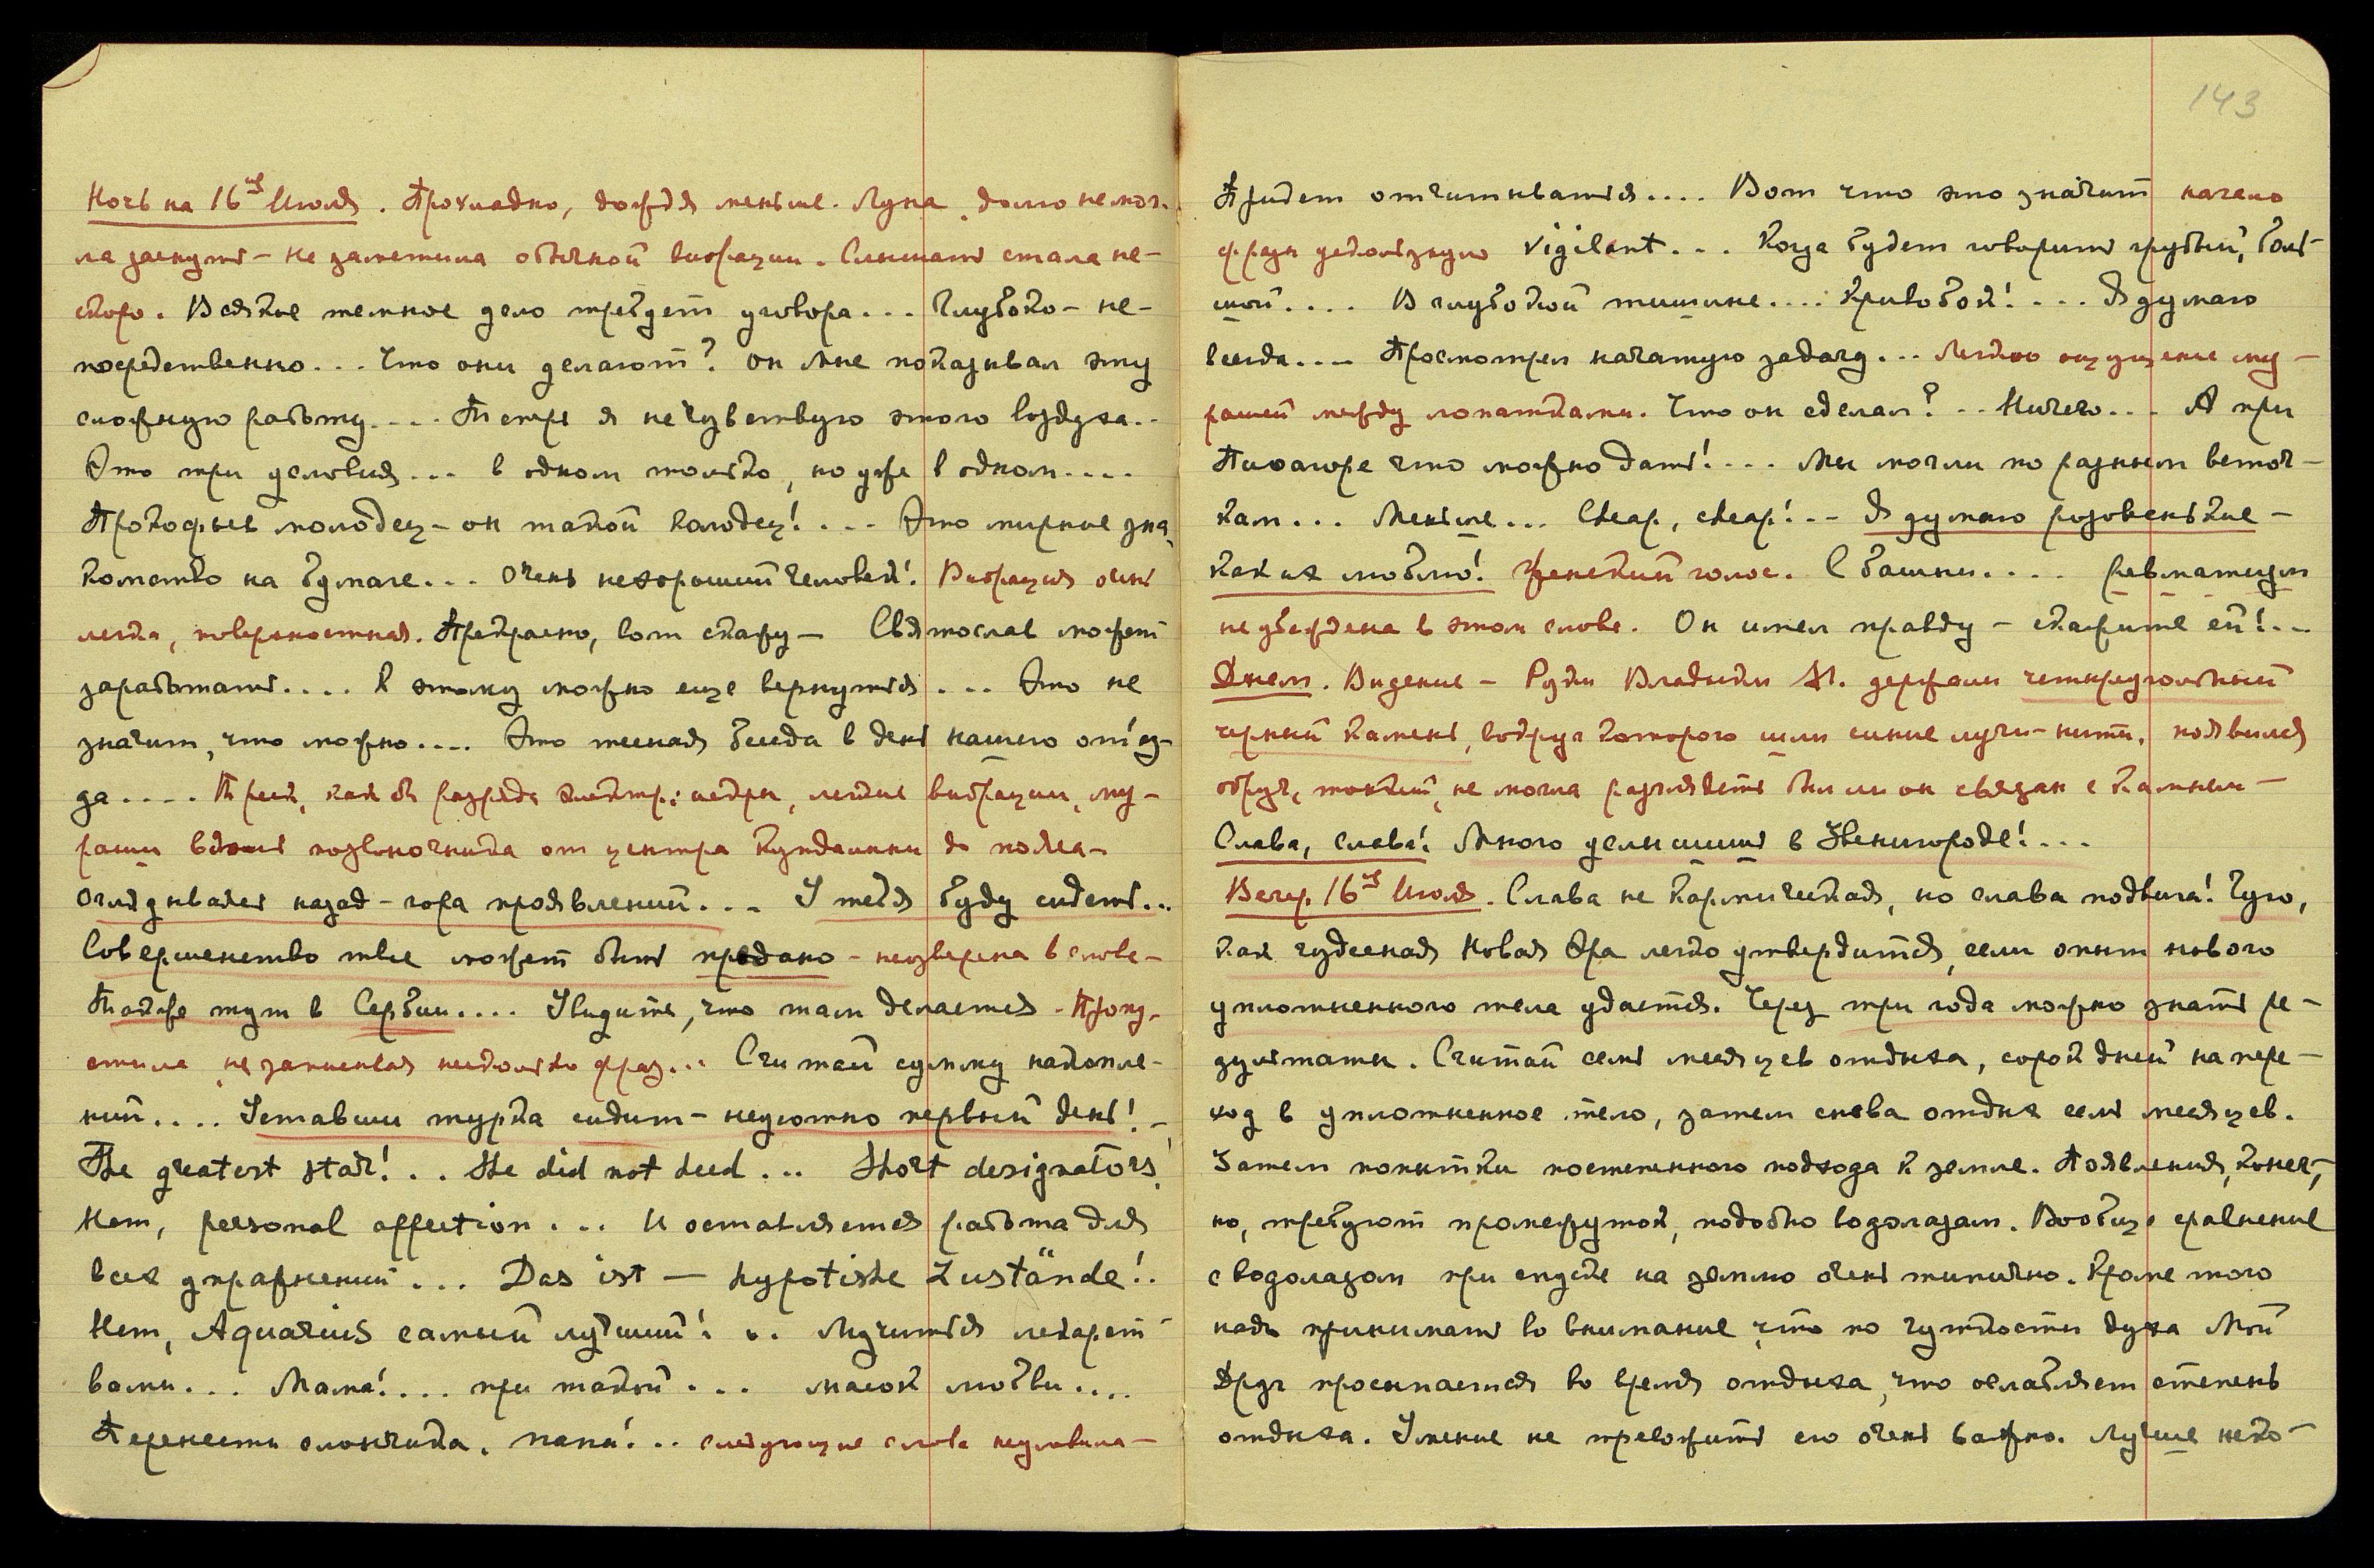 Ночь на 16ое Июля. Прохладно, дождя меньше. Луна, долго не мог-
ла заснуть – не заметила обычной вибрации. Слышать стала не-
скоро. Всякое темное дело требует уговора... Глубоко – не-
посредственно... Что они делают? Он мне показывал эту
сложную работу.... Теперь я не чувствую этого воздуха..
Это три условия... в одном только, но уже в одном....
Прокофьев молодец – он такой колодец!... Это мирное зна-
комство на бумаге... Очень нехороший человек! Вибрация очень
легка, поверхностная. Прекрасно, вот скажу – Святослав может
заработать.... К этому можно еще вернуться.... Это не
значит, что можно.... Это тесная беседа в день нашего отъез-
да.... Треск, как бы разряда электр: искры, легкие вибрации, му-
раши вдоль позвоночника от центра Кундалини до пояса –
Оглядываясь назад – гора проявлений... У тебя буду сидеть...
Совершенство твое может быть продано – не уверена в слове –
Также тут в Сербии.... Увидите, что там делается. Пропу-
стила, не записывая несколько фраз... Считай сумму накопле-
ний.... Уставши турка сидит – неуютно первый день! –
The greatest star!.. He did not heed... Short designators,
Нет, personal affection... И оставляется работа для
всех упражнений... Das ist – hypotishe Zustände!.
Нет, Aquarius самый лучший!... Мучиться лекарст-
вами... Мама!... при такой... малой любви....
Перенести слончика. Папа!.. следующие слова неуловила –
143
Придет отчитываться.... Вот что это значит начало
фразы ускользнуло vigilant... Когда будет говорить грубый, боль-
шой.... В глубокой тишине.... Кривобок!... Я думаю
всегда.... Просмотрел начатую задачу... Легкое ощущение му-
рашей между лопатками. Что он сделал?.. Ничего... А при
Пифагоре что можно дать!.... Мы могли по разным веточ-
кам... Меньше... Cheap, cheap!.. Я думаю розовенькие –
как их люблю! Женский голос. С башни.... ревматизм
не убеждена в этом слове. Он имел правду – скажите ей!...
Днем. Видение – Руки Владыки М. держали четыреугольный
черный камень, вокруг которого шли синие лучи-нити, появился
обруч, тонкий, не могла разглядеть был ли он связан с камнем –
Слава, слава! Много услышишь в Звенигороде!...
Вечер 16ое Июля. Слава не кармическая, но слава подвига! Чую,
как чудесная Новая Эра легко утвердится, если опыт нового
уплотненного тела удастся. Через три года можно знать ре-
зультаты. Считай семь месяцев отдыха, сорок дней на пере-
ход в уплотненное тело, затем снова отдых семь месяцев.
Затем попытки постепенного подхода к земле. Появления, конеч-
но, требуют промежуток, подобно водолазам. Вообще сравнение
с водолазом при спуске на землю очень типично. Кроме того
надо принимать во внимание, что по чуткости духа Мой
Друг просыпается во время отдыха, что ослабляет степень
отдыха. Умение не тревожить его очень важно. Лучше неко-